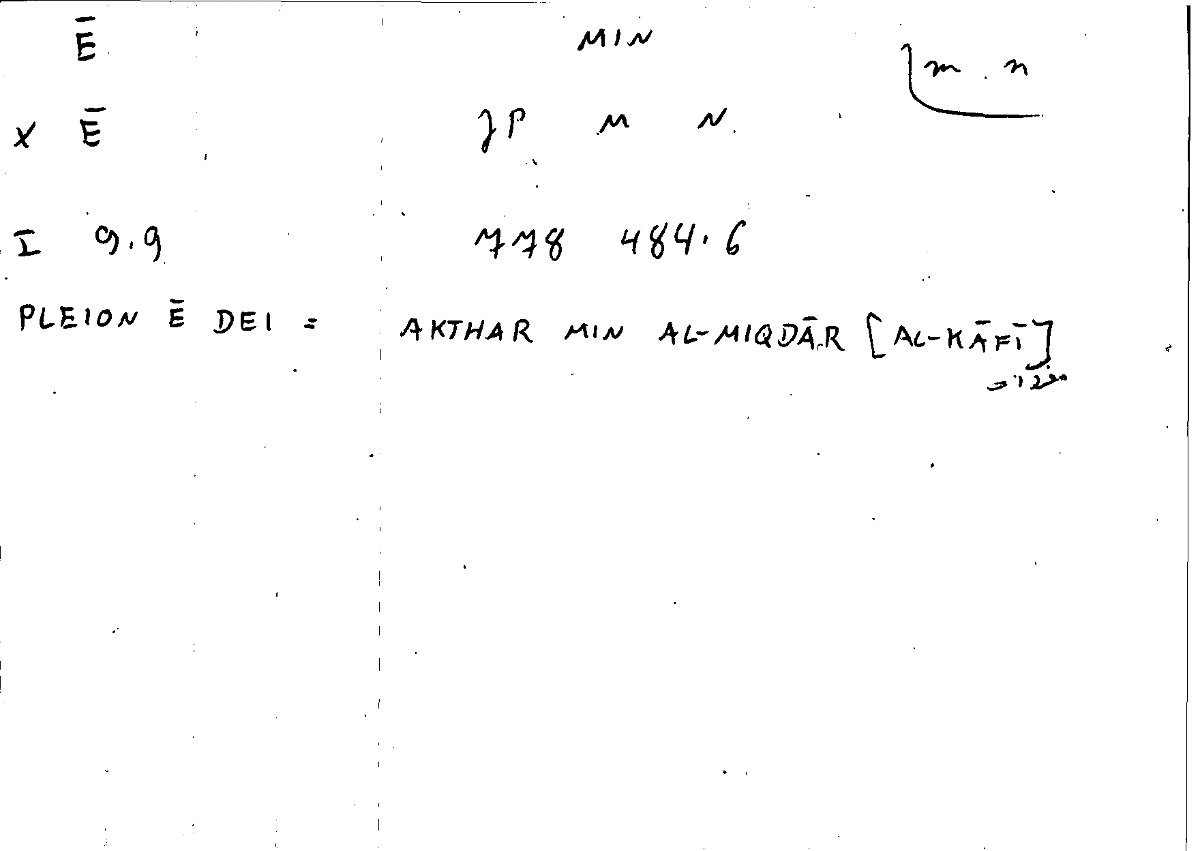 Ē MIN
m . n
X Ē JP M N.
I 9.9 778 484.6
PLEION Ē DEI = AKTHAR MIN AL-MIQDĀR [AL-KĀFĪ]